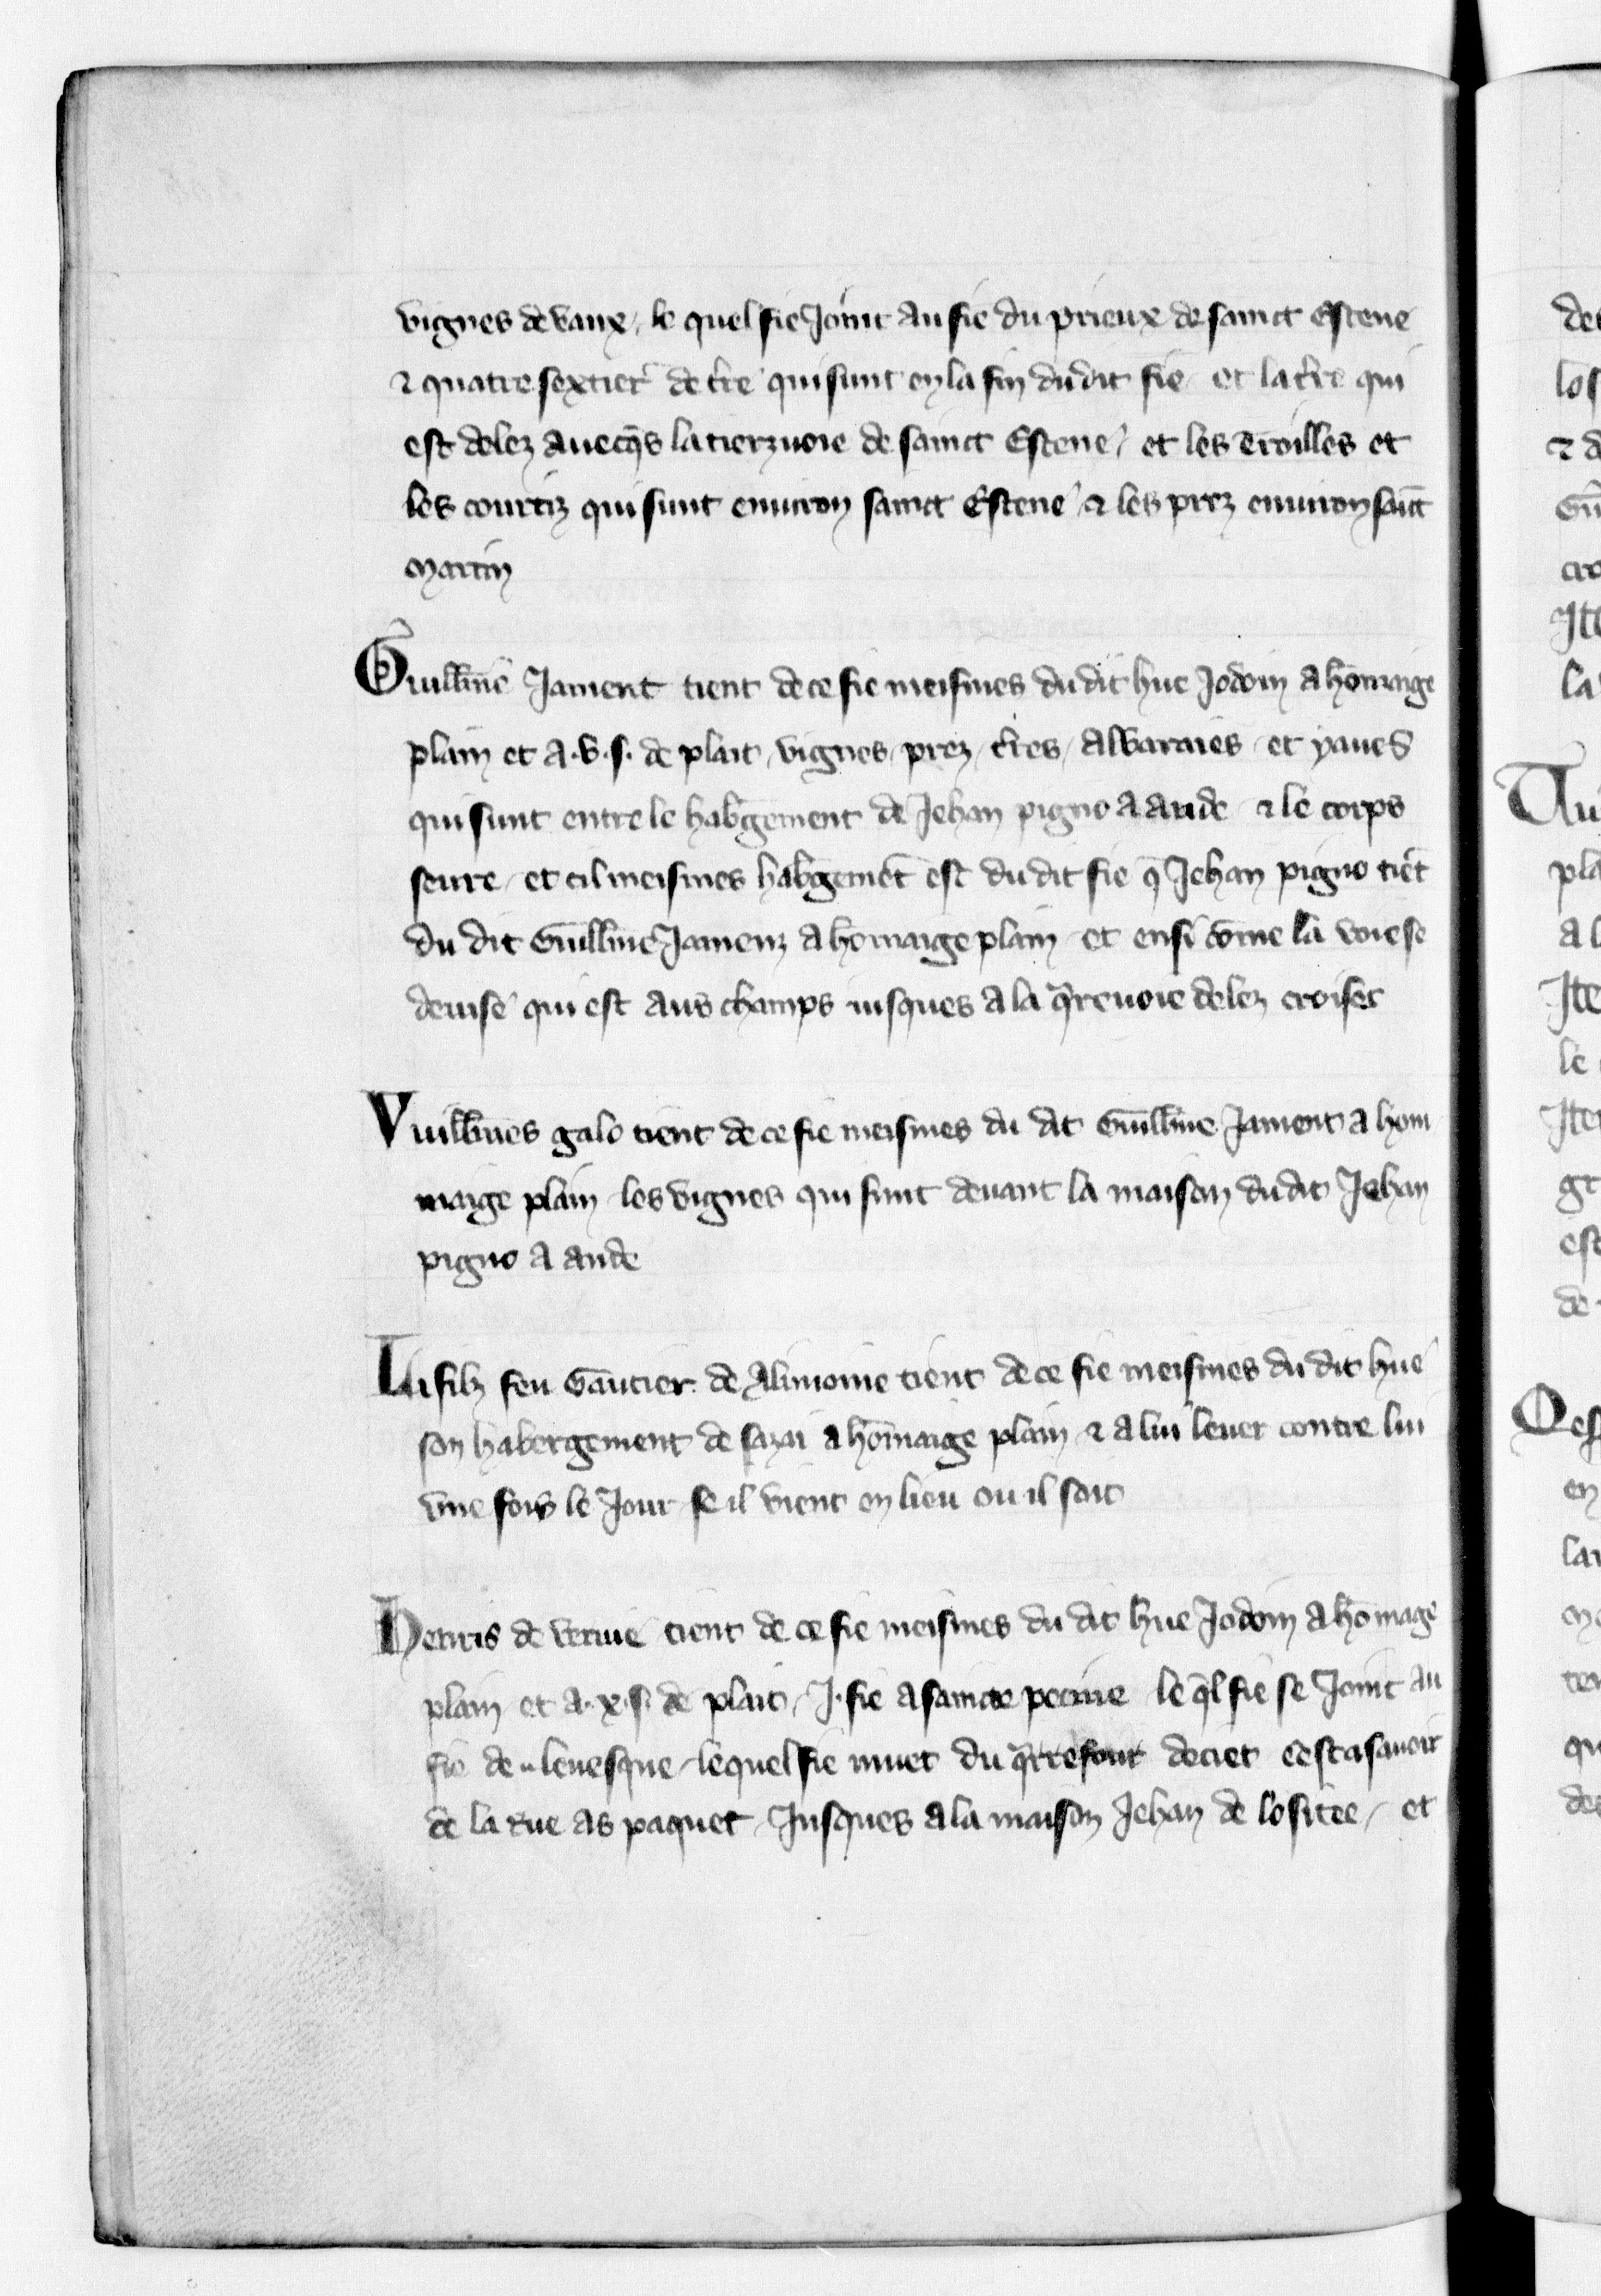 vignes de vaux, le quel fie Joint au fie du prieux de sainct Estene
& quatre sextier de tr̃e qui sunt en la fin du dit fie et la tr̃e qui
est delez auecq̃s la tierz uoie de sainct Estene, et les troilles et
les courtiz qui sunt enuiron sainct Estene & les prez enuiron saict̃
martin
Guill̃me Jament tient de ce fie meismes du dit hue Jodoin a hom̃aige
plain et a .v. s. de plait, vignes, prez, tr̃es, alvaraies et yaues
qui sunt entre le hab̃gement de Jehan pigno a aude & le corps
seure, et cil meismes hab̃gemẽt est du dit fie q̃ Jehan pigno tiẽt
du dit Guill̃me Jamenz a homaige plain et ensi cõme la voie se
deuise qui est aus champs iusques a la q̃reuoie delez croiset
Vuill̃mes galo tient de ce fie meismes du dit Guill̃me Jament a hom
maige plain les vignes qui sunt deuant la maison du dit Jehan
pigno a aude
Li filz feu Gautier de Alimoine tient de ce fie meismes du dit hue
son habergement de sazai a hom̃aige plain & a lui leuer contre lui
vne fois le Jour se il vient en lieu ou il soit
Henris de vernie tient de ce fie meismes du dit hue Jodoin a homage
plain et a .x. s. de plait, J. fie a saincte perine le q̃l fie se Joint au
fie de leuesque, lequel fie muet du q̃rrefour deciet cest asauoir
de la rue as paquet Jusques a la maison Jehan de lositee, et